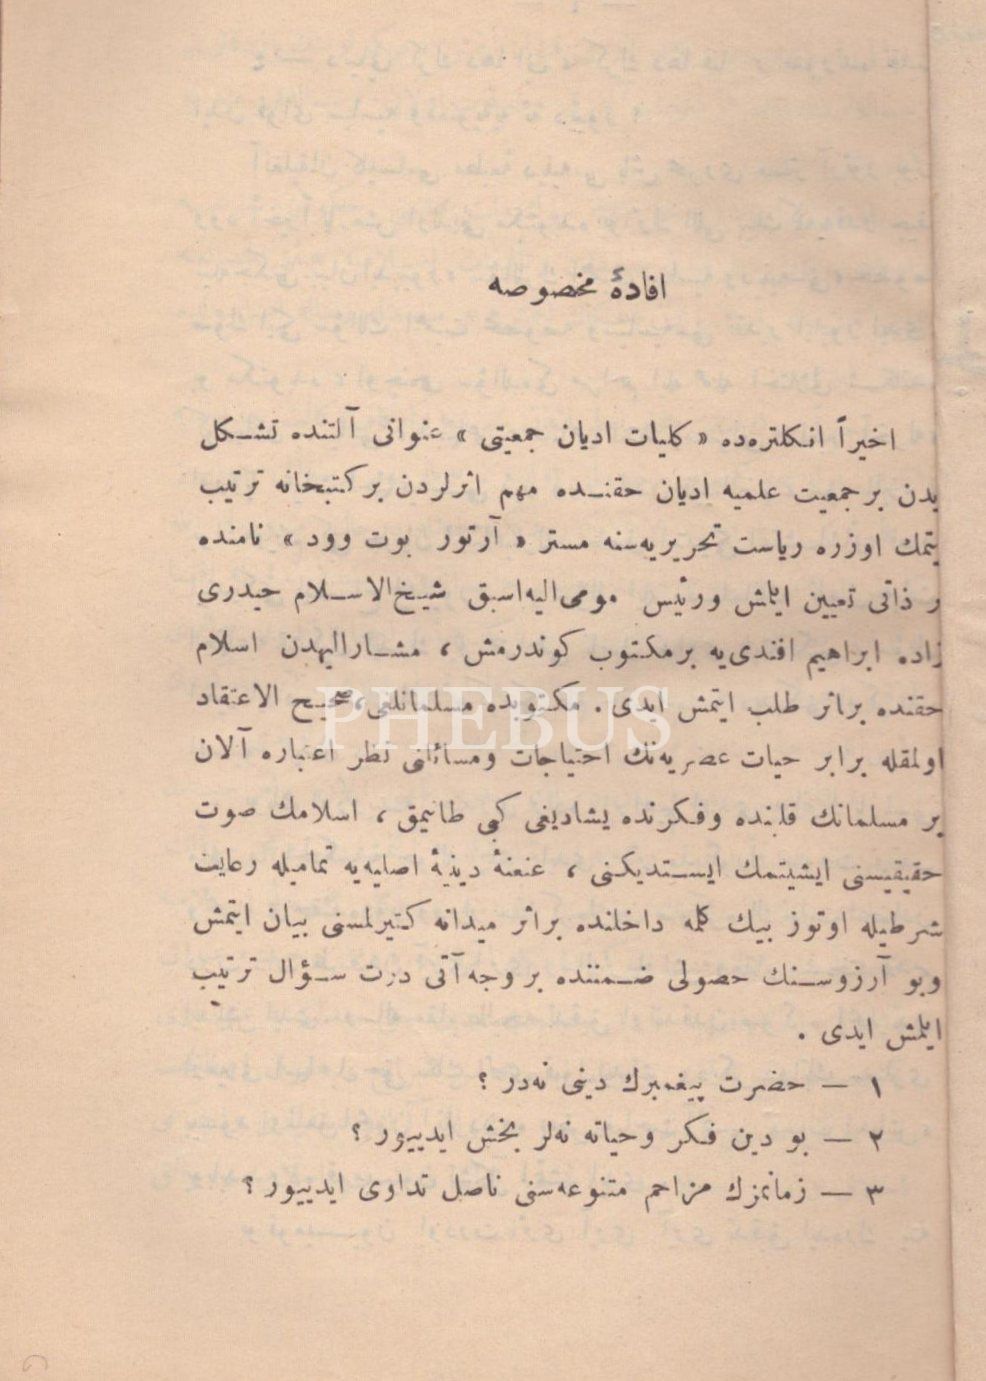 افادهٔ مخصوصه
اخیراً انكلتره‌ده « كلیات ادیان جمعیتی » عنوانی آلتنده تشـكل
یدن بر جمعیت علمیه ادیان حقنـده مهم اثرلردن بر كتبخانه ترتیب
یتمك اوزره ریاست تحریریه‌سنه مستر « آرتور بوت وود » نامنده
ر ذاتی تعیین ایلمش ورئیس مومی‌الیه‌اسبق شیخ‌الاسـلام حیدری
زاده ابراهیم افندی‌یه برمكتوب كوندرمش ، مشـارالیهدن اسلام
حقنده براثر طلب ایتمش ایدی . مكتوبده مسلمانلغی، صحیح الاعتقاد
اولمقله برابر حیات عصریه‌نك احتیاجات ومسائلنی نظر اعتباره آلان
بر مسلمانك قلبنده وفكرنده یشادیغی كبی طانیمق ، اسلامك صوت
حقیقیسنی ایشیتمك ایسـتدیكنی ، عنعنهٔ دینیهٔ اصلیه‌یه تمامیله رعایت
شرطیله اوتوز بیك كلمه داخلنده براثر میدانه كتیرلمسنی بیان ایتمش
وبو آرزوسـنك حصولی ضـمننده بروجه‌آتی درت سـؤال ترتیب
ایلمش ایدی .
١ — حضرت پیغمبرك دینی نه‌در ؟
٢ — بو دین فـكر وحیاته نه‌لر بخش ایدییور ؟
٣ — زمانمزك مزاحم متنوعه‌سنی ناصل تداوی ایدییور ؟
PHEBUS